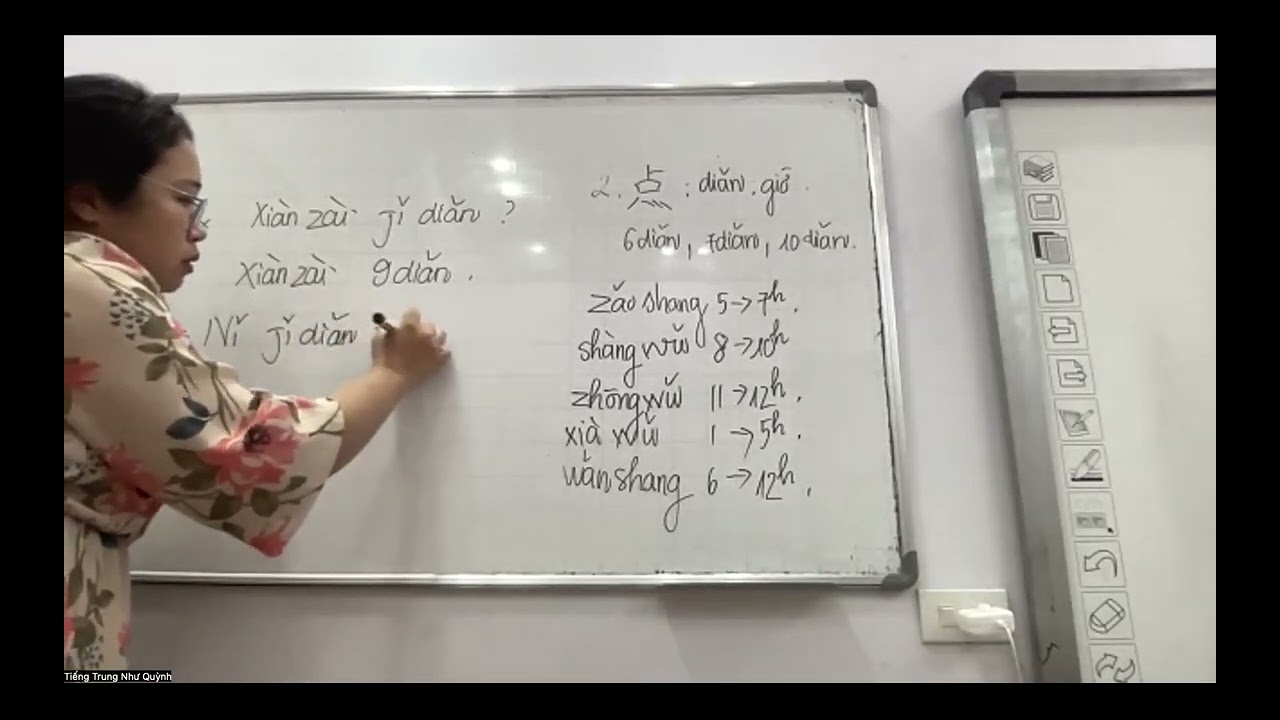 Xiàn zài jǐ diǎn ?
Xiàn zài 9 diǎn .
Nǐ jǐ diǎn
2. 点 : diǎn : giờ .
6 diǎn , 7 diǎn , 10 diǎn .
zǎo shang 5 → 7h .
shàng wǔ 8 → 10h
zhōng wǔ 11 → 12h .
xià wǔ 1 → 5h .
wǎn shang 6 → 12h .
Tiếng Trung Như Quỳnh